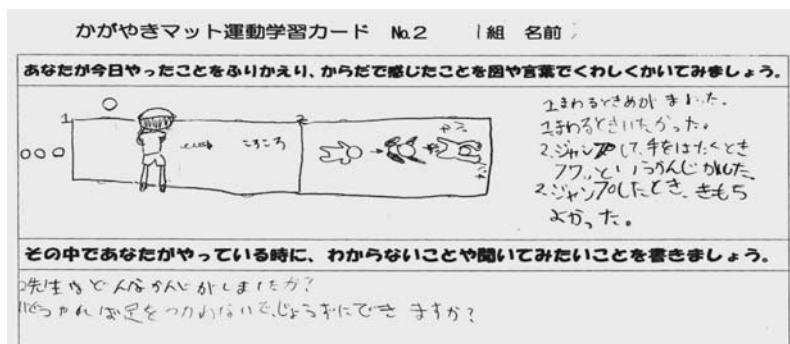 かがやきマット運動学習カード No.2 1組 名前
あなたが今日やったことをふりかえり、からだで感じたことを図や言葉でくわしくかいてみましょう。
1 2
ころころ
1.まわるときめがまわった。
1.まわるときいたかった。
2.ジャンプして、手をはたくとき
フワッというかんじがした。
2.ジャンプしたとき、きもち
よかった。
その中であなたがやっている時に、わからないことや聞いてみたいことを書きましょう。
先生はどんなかんじがしましたか?
どうやれば足をつかわないで、じょうずにできますか?